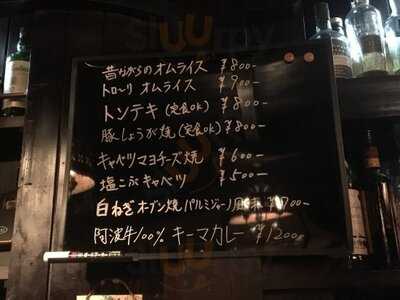 昔ながらのオムライス ¥800-
トロ〜リ オムライス ¥900-
トンテキ (定食OK) ¥800-
豚しょうが焼 (定食OK) ¥800-
キャベツマヨチーズ焼 ¥600-
塩こぶキャベツ ¥500-
白ねぎオーブン焼 パルミジャーノ風味 ¥700-
阿波牛100% キーマカレー ¥1200-